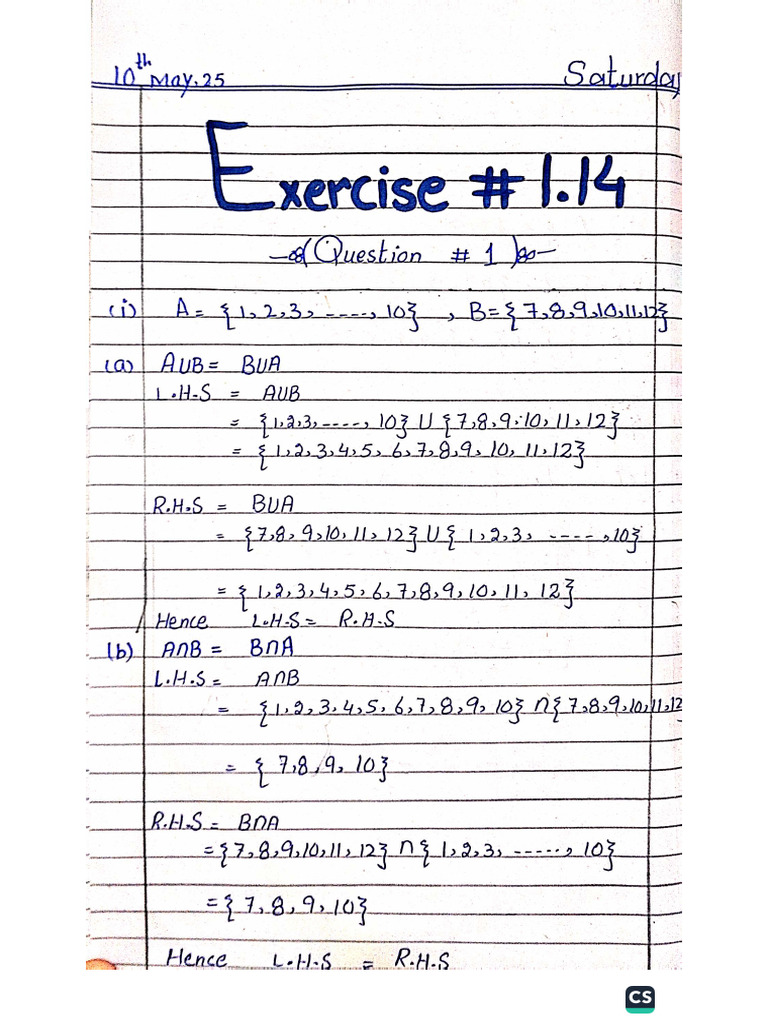 10th May, 25 Saturday
Exercise # 1.14
(Question # 1)
(i) A = {1, 2, 3, ----, 10} , B = {7, 8, 9, 10, 11, 12}
(a) A∪B = B∪A
L.H.S = A∪B
= {1, 2, 3, ----, 10} ∪ {7, 8, 9, 10, 11, 12}
= {1, 2, 3, 4, 5, 6, 7, 8, 9, 10, 11, 12}
R.H.S = B∪A
= {7, 8, 9, 10, 11, 12} ∪ {1, 2, 3, ----, 10}
= {1, 2, 3, 4, 5, 6, 7, 8, 9, 10, 11, 12}
Hence L.H.S = R.H.S
(b) A∩B = B∩A
L.H.S = A∩B
= {1, 2, 3, 4, 5, 6, 7, 8, 9, 10} ∩ {7, 8, 9, 10, 11, 12
= {7, 8, 9, 10}
R.H.S = B∩A
= {7, 8, 9, 10, 11, 12} ∩ {1, 2, 3, -----, 10}
= {7, 8, 9, 10}
Hence L.H.S = R.H.S
CS